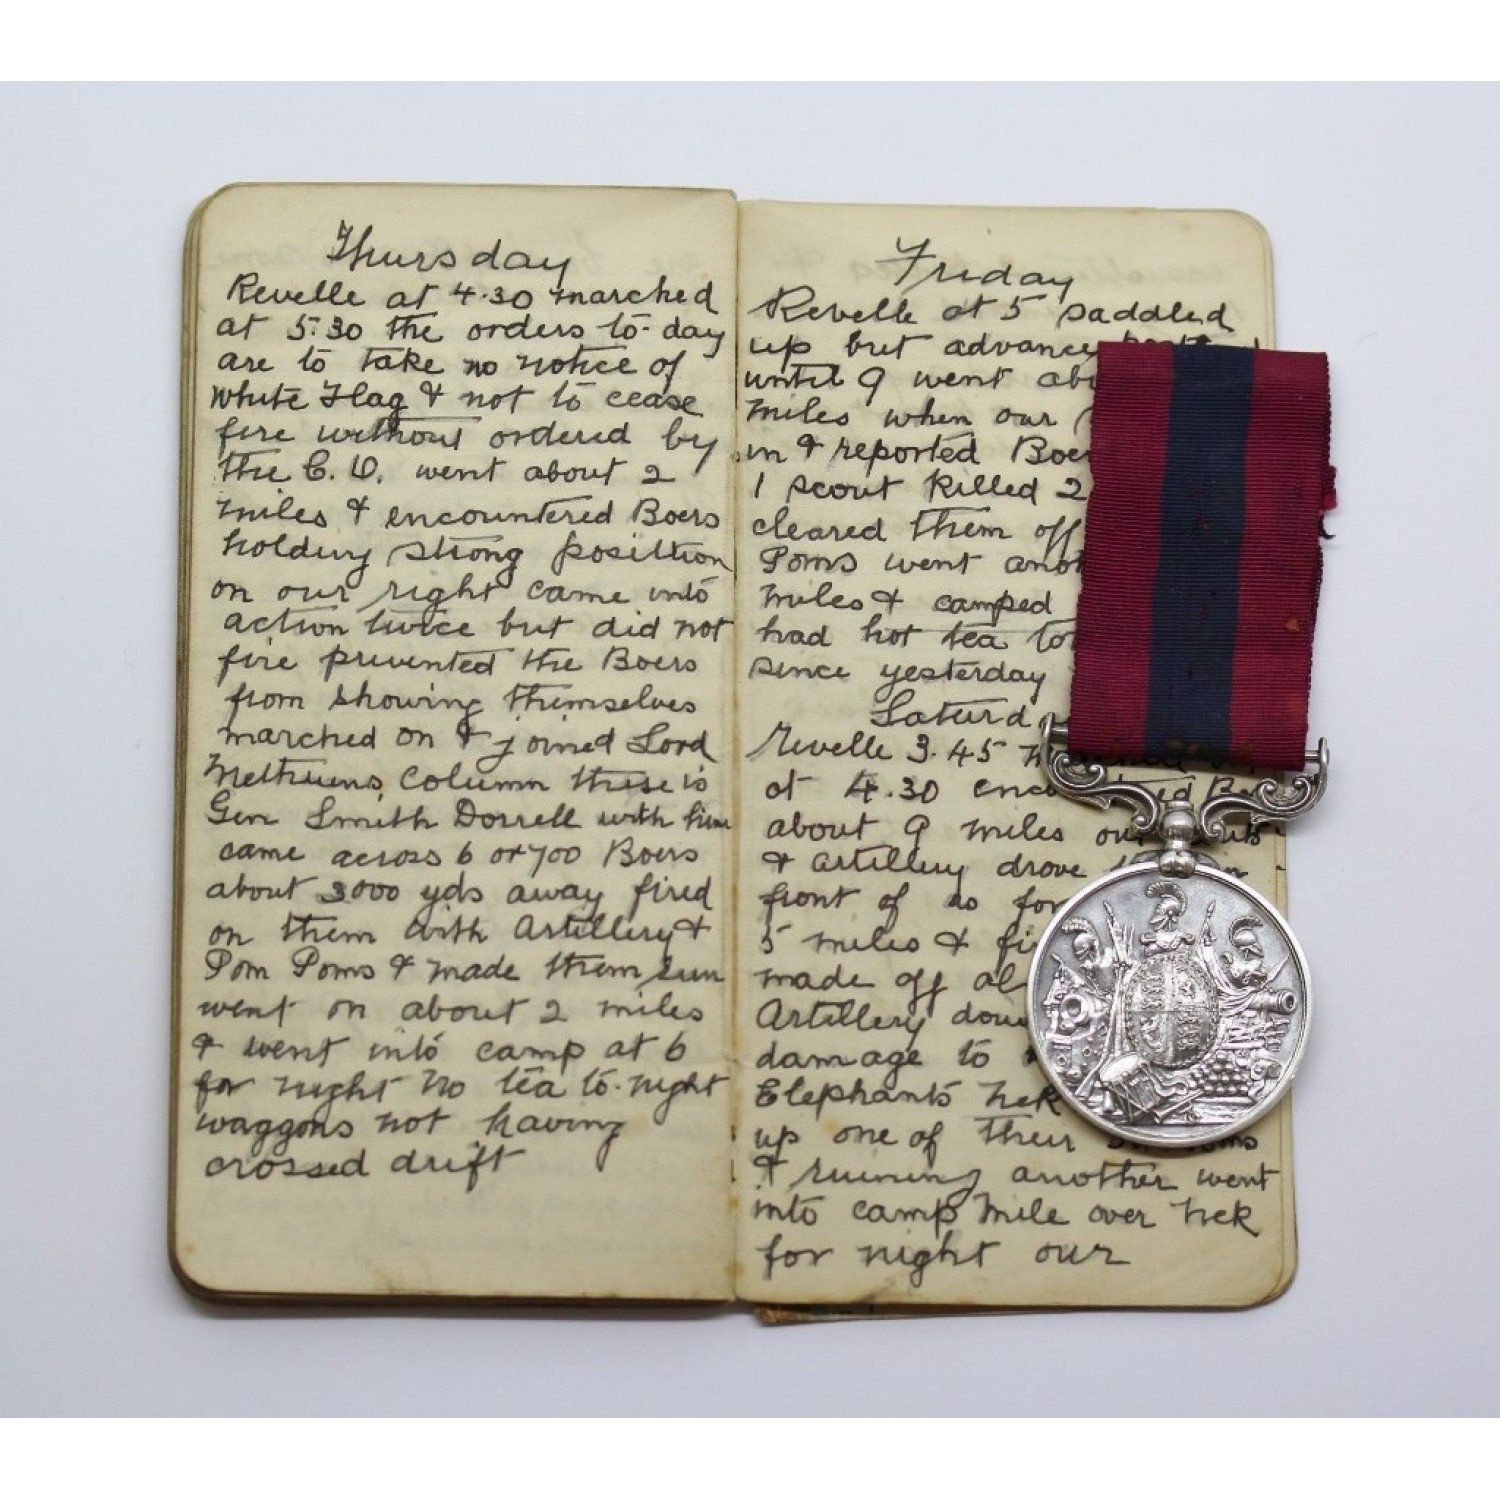 Thursday
Revelle at 4.30 marched
at 5.30 the orders to-day
are to take no notice of
White Flag & not to cease
fire without ordered by
the C.O. went about 2
miles & encountered Boers
holding strong position
on our right came into
action twice but did not
fire prevented the Boers
from showing themselves
marched on & joined Lord
Methuens Column there is
Gen Smith Dorrell with him
came across 6 or 700 Boers
about 3000 yds away fired
on them with Artillery &
Pom Poms & made them run
went on about 2 miles
& went into camp at 6
for night No tea to-night
waggons not having
crossed drift
Friday
Revelle at 5 saddled
up but advance
until 9 went
miles when our
in & reported
1 scout killed 2
cleared them off
Poms went
miles & camped
had hot tea
since yesterday
Revelle 3.45
at 4.30
about 9 miles
& Artillery drove
front of us for
5 miles &
made off
Artillery
damage to
Elephants Nek
up one of their
& ruining another went
into camp Mile over Nek
for night our